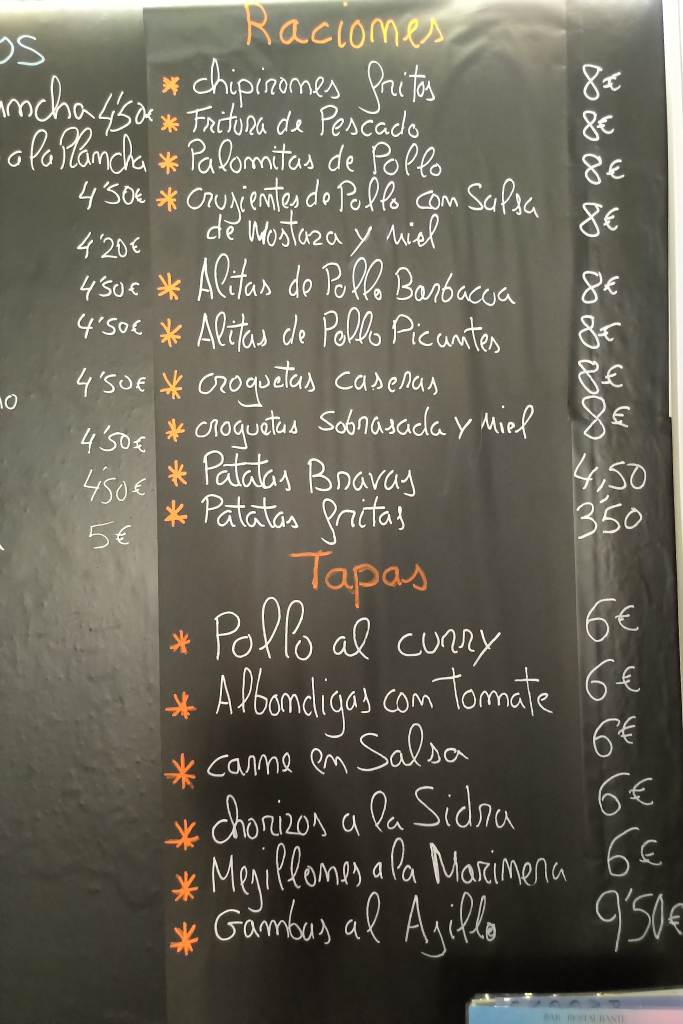 OS
ancha 4'50€
a la Plancha
4'50€
4'20€
4'50€
4'50€
4'50€
4'50€
4'50€
5€
Raciones
* chipirones fritos 8€
* Fritura de Pescado 8€
* Palomitas de Pollo 8€
* crujientes de Pollo con Salsa
de Mostaza y Miel 8€
* Alitas de Pollo Barbacoa 8€
* Alitas de Pollo Picantes 8€
* croquetas caseras 8€
* croquetas Sobrasada y Miel 8€
* Patatas Bravas 4,50
* Patatas fritas 3'50
Tapas
* Pollo al curry 6€
* Albondigas con Tomate 6€
* carne en Salsa 6€
* chorizos a la Sidra 6€
* Mejillones a la Marinera 6€
* Gambas al Ajillo 9'50€
BAR RESTAURANTE